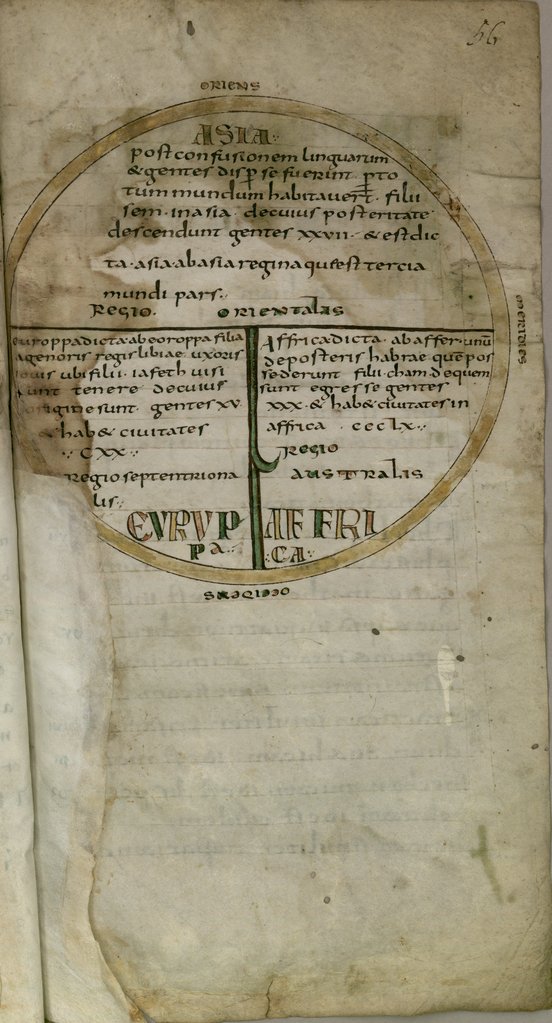 56
ORIENS
ASIA
post confusionem linguarum
& gentes disp se fuerunt p to
tum mundum habitavert. filii
sem. in asia. de cuius posteritate
descendunt gentes xxvii. & est dic
ta. asia. ab asia regina que est tercia
mundi pars.
REGIO. ORIENTALIS
europpa dicta ab eoroppa filia
agenoris regis libiae. uxoris
iovis ubi filii. iafeth visi
sunt tenere de cuius
origine sunt. gentes xv
& hab& civitates
cxx
regio septentriona
lis
EVRVP
PA
Affrica dicta. ab affer. unu
de posteris habrae que pos
sederunt filii. cham. de quem
sunt egresse gentes
xxx. & hab& civitates in
affrica. ccclx.
REGIO
AUSTRALIS
AFFRI
CA
MERIDIES
OCCIDENS